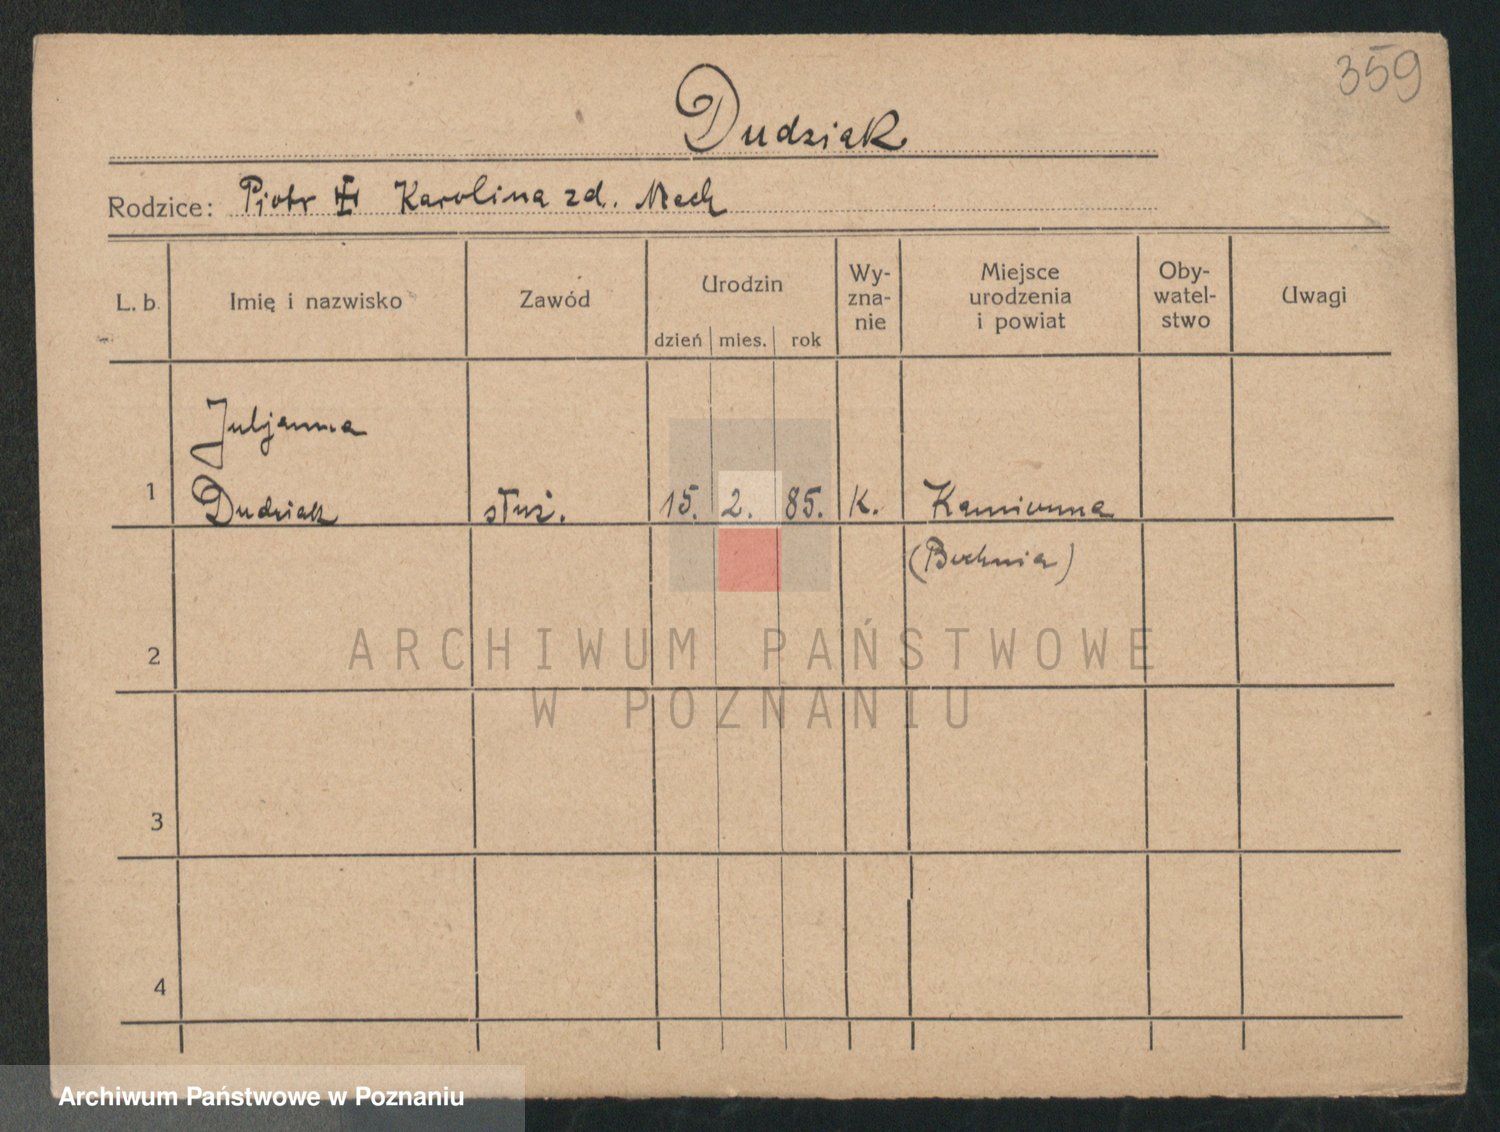 359
Dudziak
Rodzice: Piotr Karolina zd. Mech
L. b. Imię i nazwisko Zawód Urodzin Wy-zna-nie Miejsce urodzenia i powiat Oby-watel-stwo Uwagi
dzień mies. rok
Juljanna
1 Dudziak służ. 15. 2. 85. K. Kamionna
(Bochnia)
2
ARCHIWUM PAŃSTWOWE
W POZNANIU
3
4
Archiwum Państwowe w Poznaniu